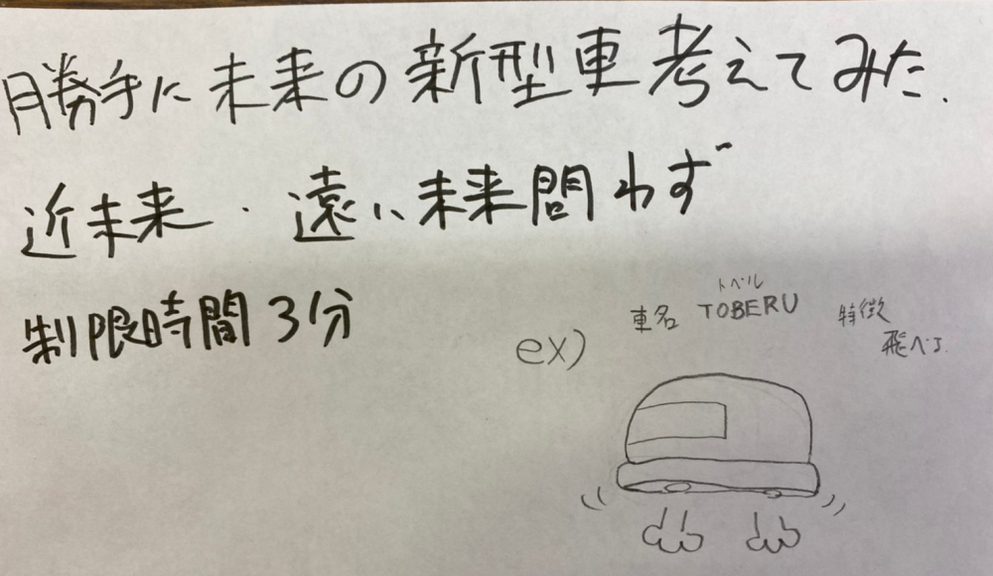 勝手に未来の新型車考えてみた.
近未来・遠い未来問わず
制限時間3分
ex)
車名 TOBERU
トベル
特徴
飛べる.